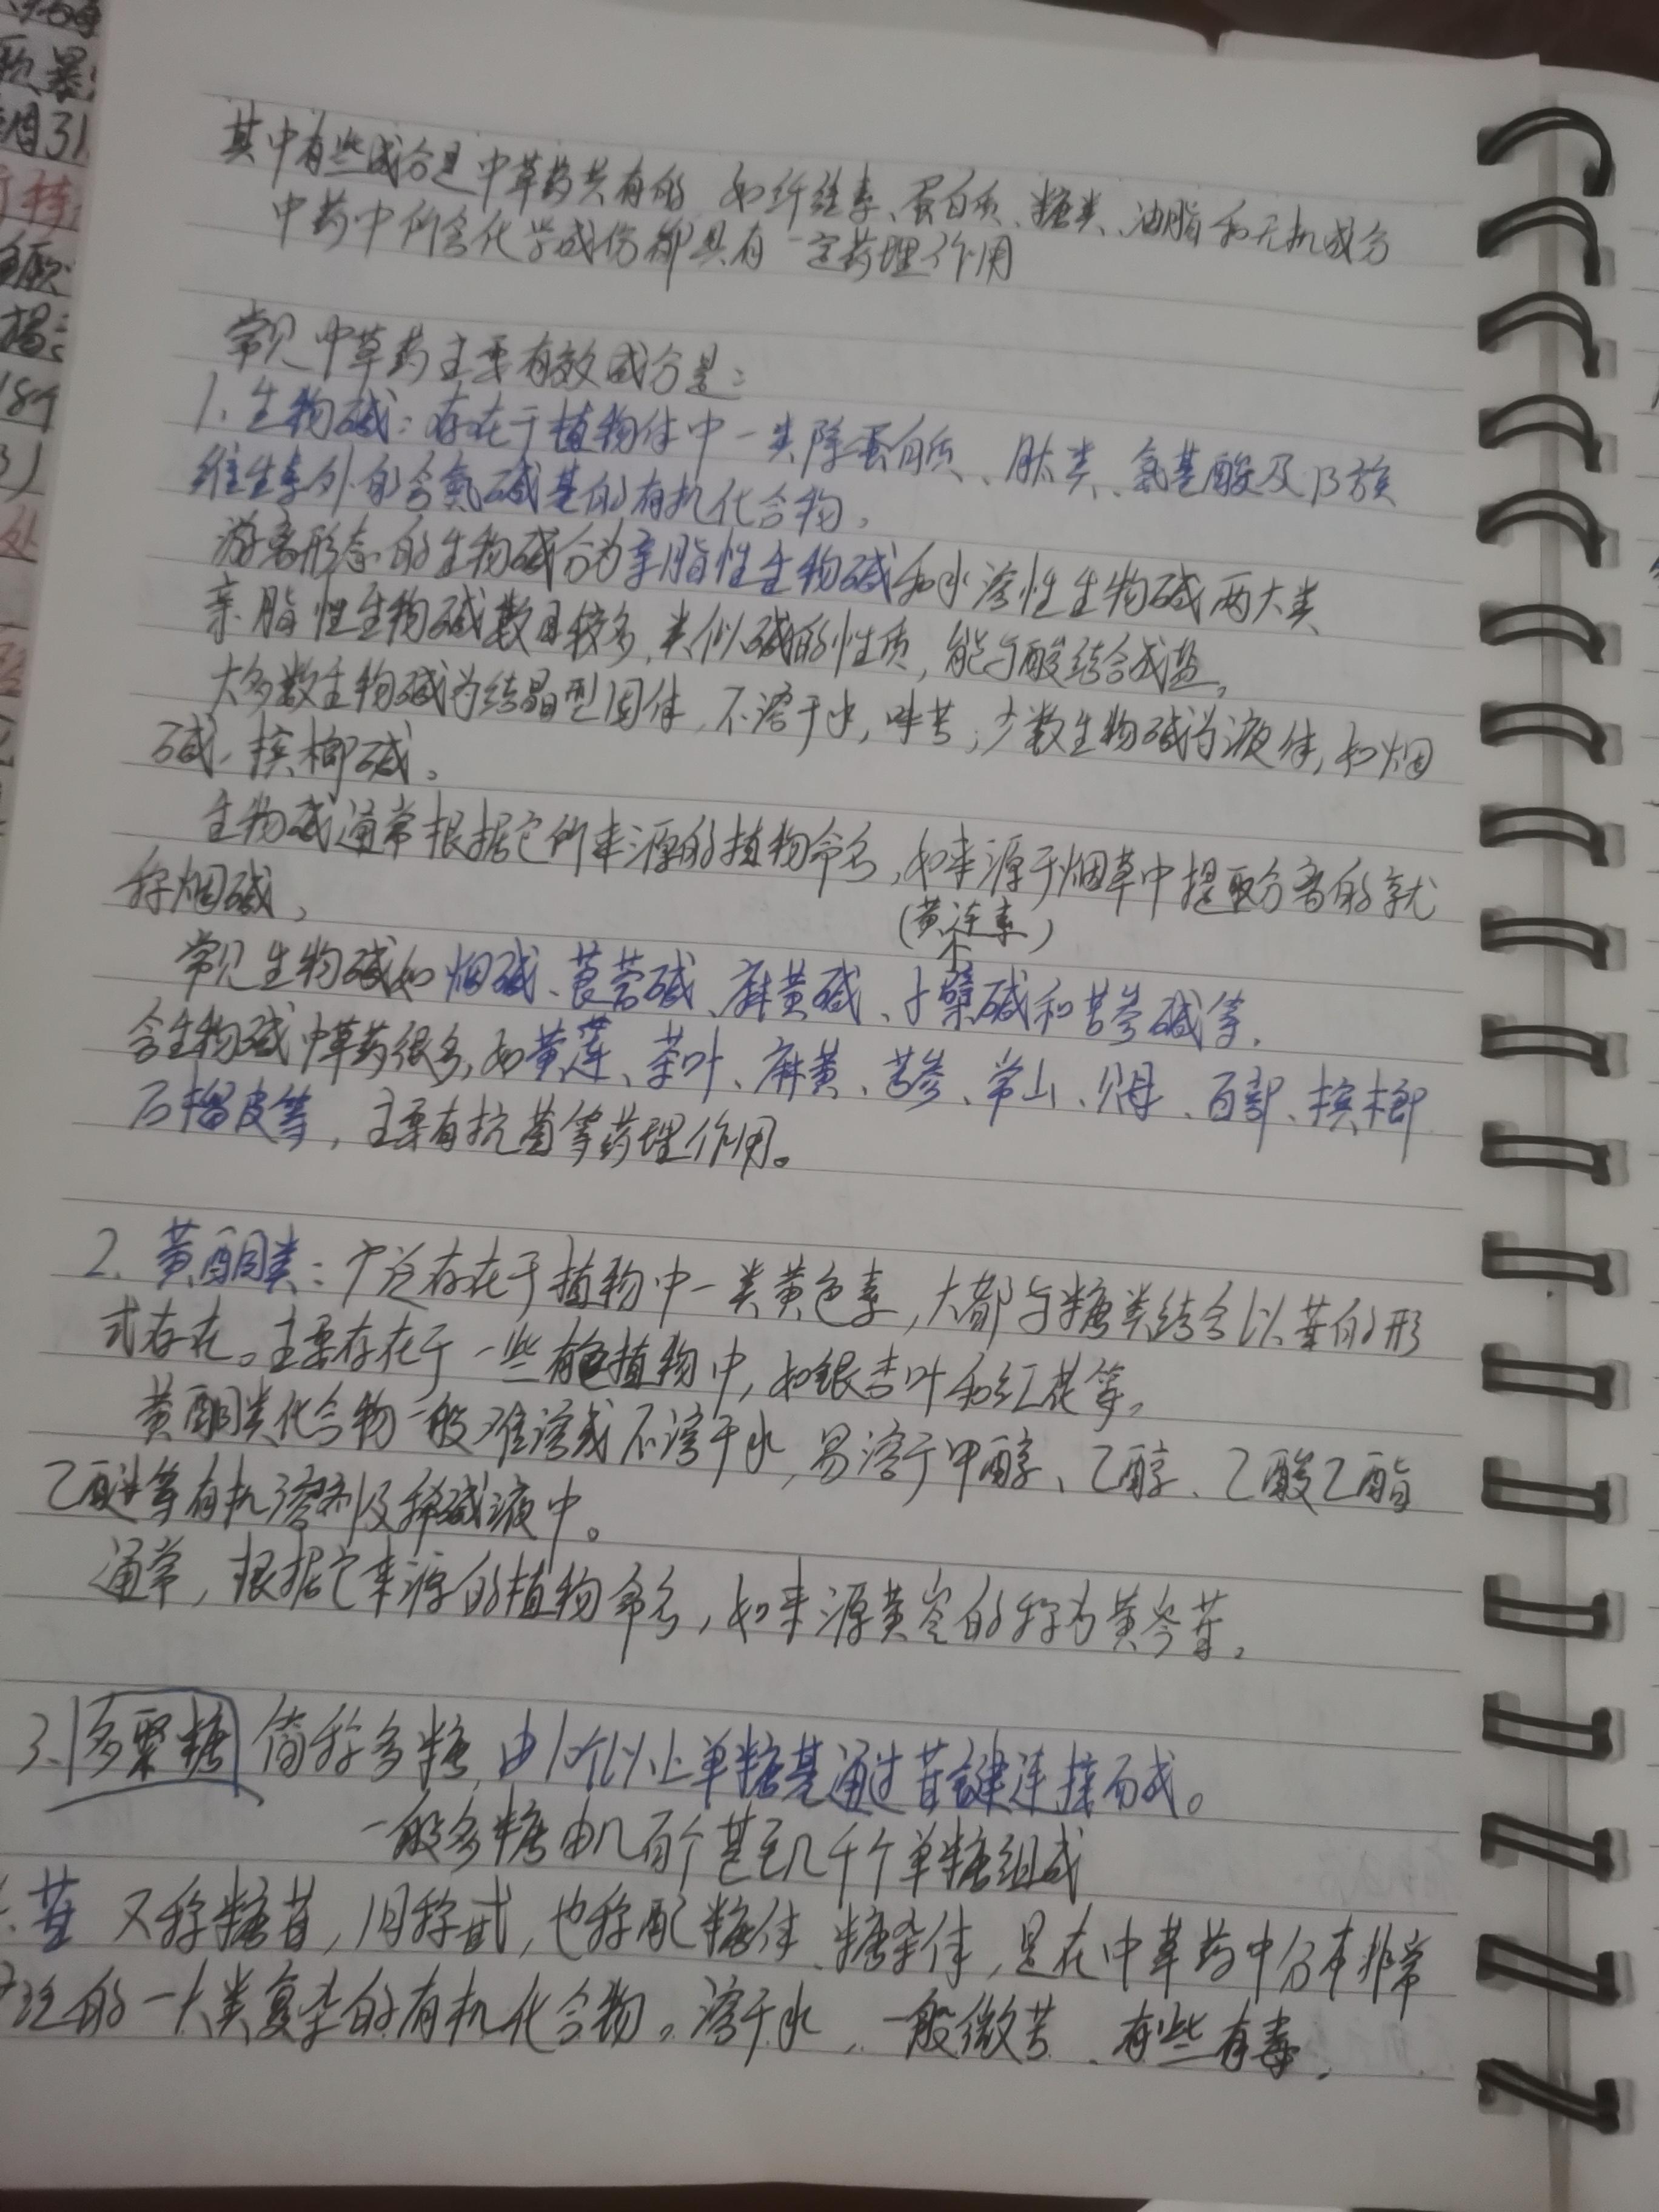 其中有些成分是中草药共有的 如纤维素、蛋白质、糖类、油脂和无机成分
中药中所含化学成份都具有一定药理作用
常见中草药主要有效成分是:
1、生物碱:存在于植物体中一类除蛋白质、肽类、氨基酸及B族
维生素外的含氮碱基的有机化合物。
游离形态的生物碱分为亲脂性生物碱和水溶性生物碱两大类
亲脂性生物碱数目较多,类似碱的性质,能与酸结合成盐。
大多数生物碱为结晶型固体,不溶于水,味苦;少数生物碱为液体,如烟
碱、槟榔碱。
生物碱通常根据它所来源的植物命名,如来源于烟草中提取分离的就
称烟碱、
(黄连素)
常见生物碱如烟碱、莨菪碱、麻黄碱、小檗碱和苦参碱等.
含生物碱中草药很多,如黄莲、茶叶、麻黄、苦参、常山、贝母、百部、槟榔
石榴皮等,主要有抗菌等药理作用。
2. 黄酮类:广泛存在于植物中一类黄色素,大都与糖类结合以苷的形
式存在。主要存在于一些有色植物中,如银杏叶和红花等。
黄酮类化合物一般难溶或不溶于水,易溶于甲醇、乙醇、乙酸乙酯
乙醚等有机溶剂及稀碱液中。
通常,根据它来源的植物命名,如来源黄芩的称为黄芩苷。
3.多聚糖 简称多糖,由10个以上单糖基通过苷键连接而成。
一般多糖由几百个甚至几千个单糖组成
苷 又称糖苷,旧称甙,也称配糖体、糖杂体,是在中草药中分布非常
泛的一大类复杂的有机化合物。溶于水,一般微苦、有些有毒.